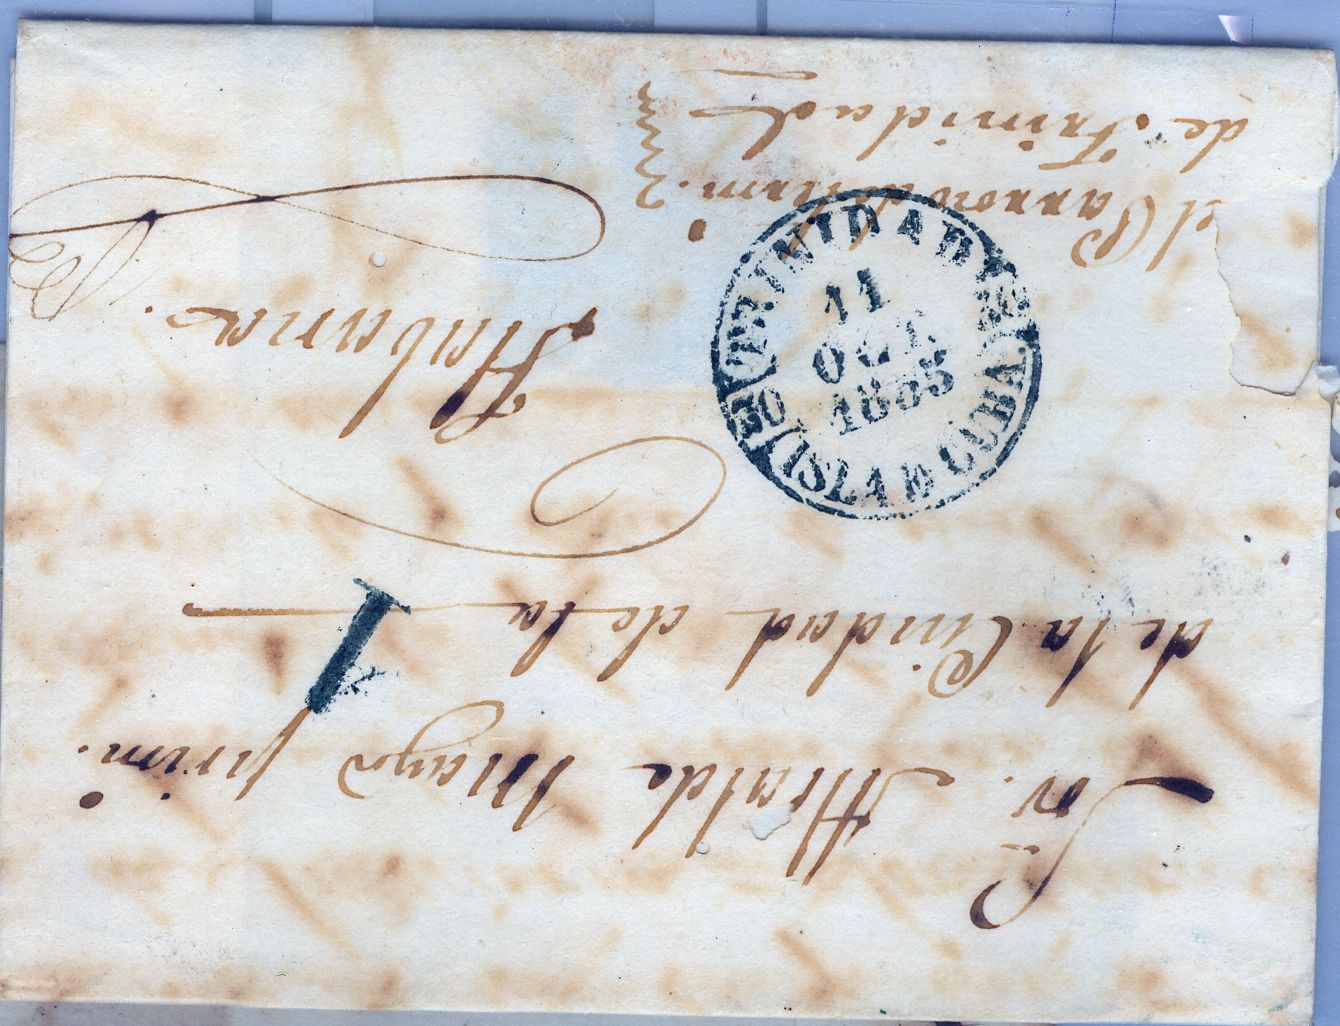 Sor. Alcalde Mayor prim.º
de la Ciudad de la
Habana.
el
de Trinidad
TRINIDAD
11
OCT.
1855
ISLA DE CUBA.
1